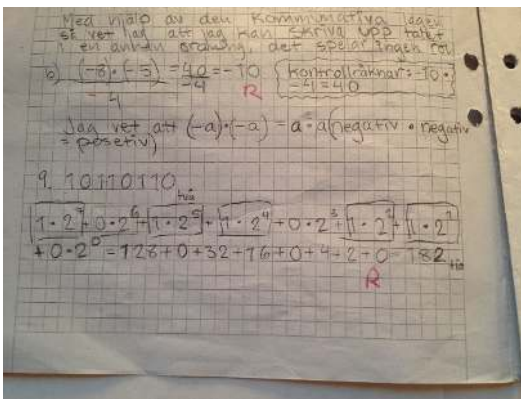 Med hjälp av den kommunativa lagen
så vet jag att jag kan skriva upp talet
i en annan ordning, det spelar ingen roll
b) (-8)·(-5) = 40 = -10 Kontrollräknar: -10 ·
-4 -4 R -4 = 40
Jag vet att (-a)·(-a) = a·a (negativ · negativ
= posetiv)
9. 10110110 två
1·2⁷ + 0·2⁶ + 1·2⁵ + 1·2⁴ + 0·2³ + 1·2² + 1·2¹
+ 0·2⁰ = 128 + 0 + 32 + 16 + 0 + 4 + 2 + 0 = 182 tio
R